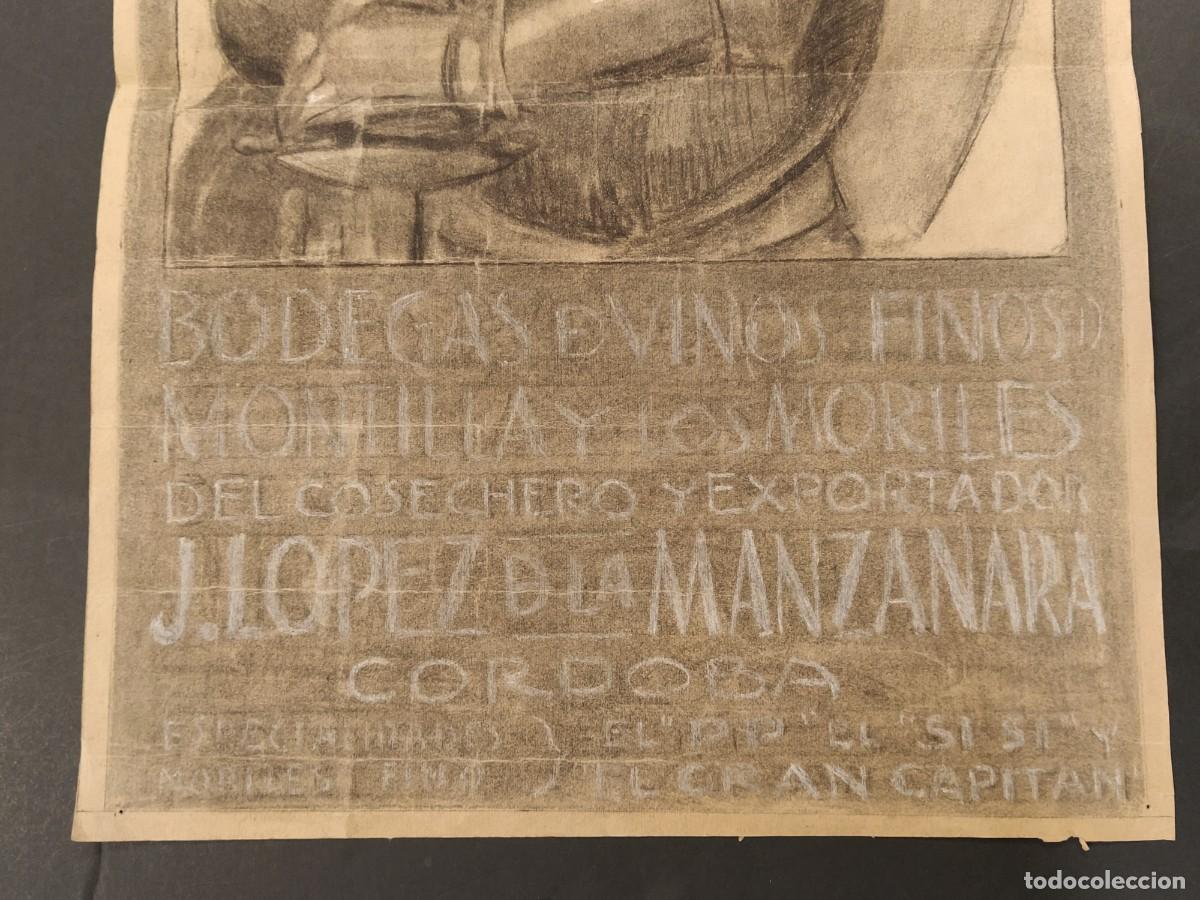 BODEGAS D VINOS FINOS D
MONTILLA Y LOS MORILES
DEL COSECHERO Y EXPORTADOR
J. LOPEZ D LA MANZANARA
CORDOBA
ESPECIALIDADES } EL "PP" EL "SI SI" Y
MORILES FINO } "EL GRAN CAPITAN"
todocoleccion